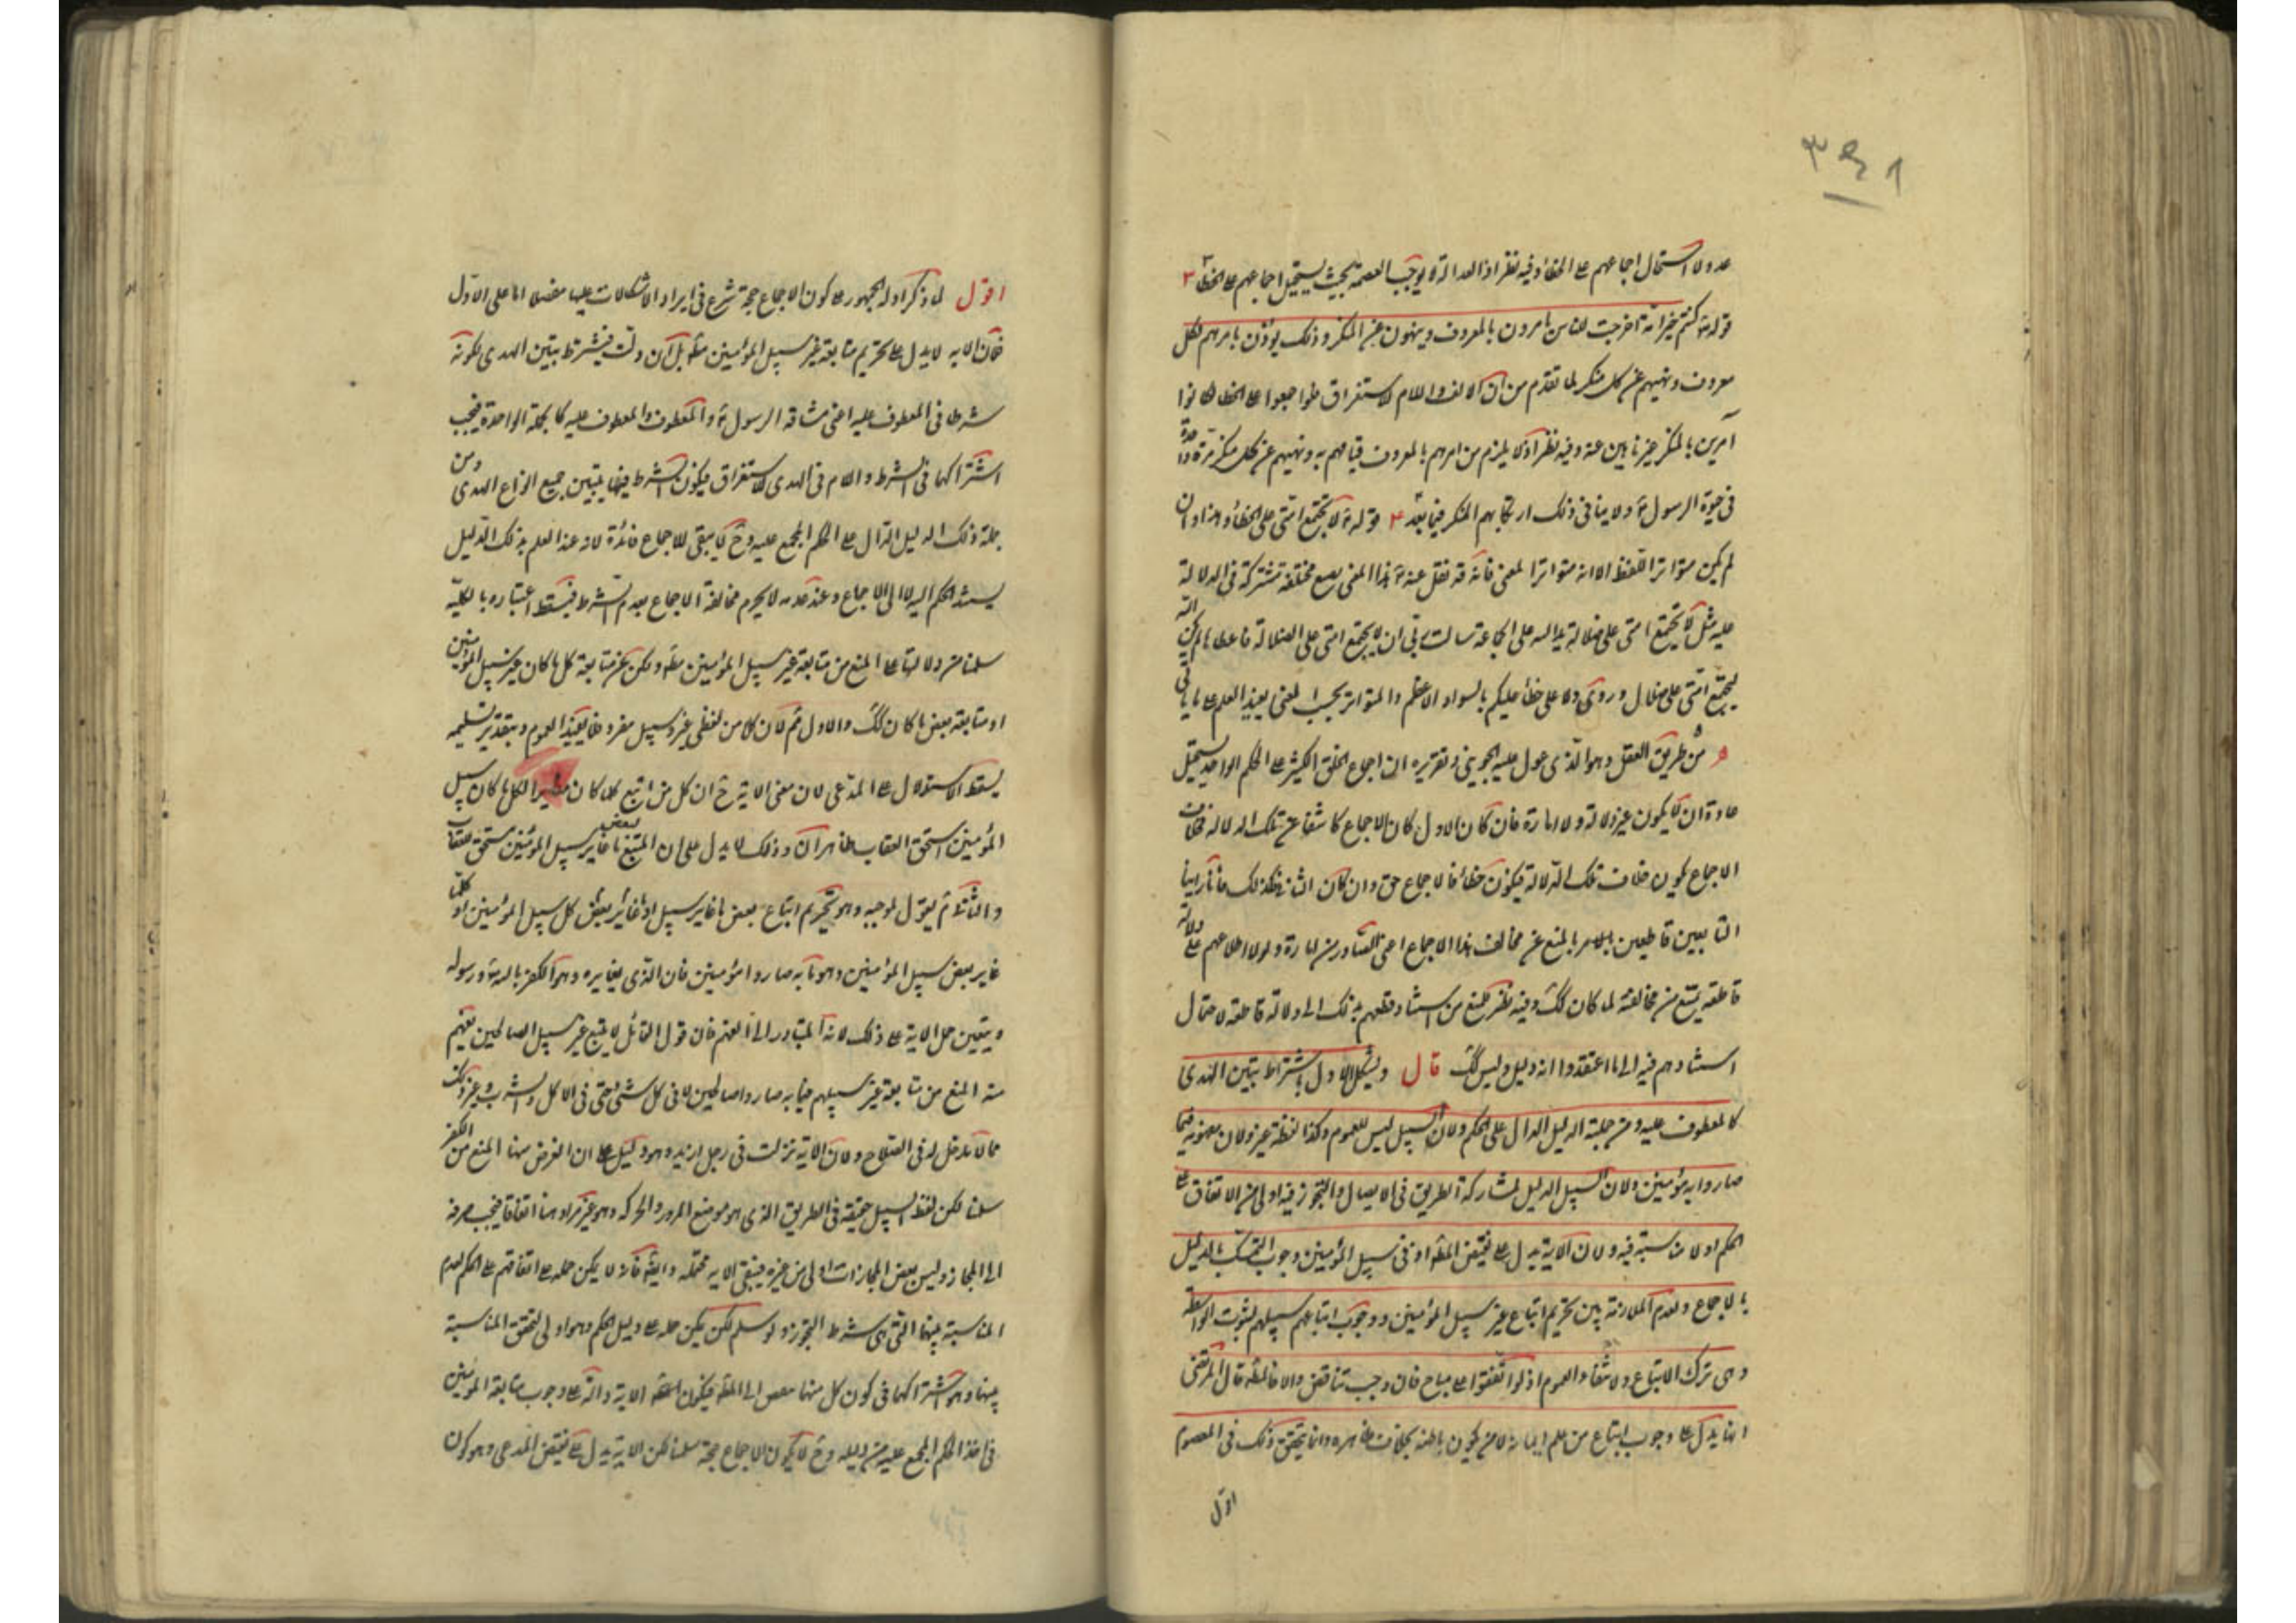 ٣٤١
عدولا استحال اجماعهم على الخطأ وفيه نظر اذ العدالة لا يوجب العصمة بحيث يستحيل اجماعهم على الخطأ ٣
قوله تع كنتم خير امة اخرجت للناس تأمرون بالمعروف وينهون عن المنكر وذلك يؤذن بامرهم لكل
معروف ونهيهم عن كل منكر لما تقدم من ان الالف واللام للاستغراق فلو اجمعوا على الخطا لكانوا
آمرين بالمنكر غير ناهين عنه وفيه نظر اذ لا يلزم من امرهم بالمعروف قيامهم به ونهيهم عن كل منكر مرة واحدة
فى حيوة الرسول ع ولا ينافى ذلك ارتكابهم المنكر فيما بعد ٤ قوله ع لا تجتمع امتى على الخطأ وهذا وان
لم يكن متواترا للفظ الا انه متواترا لمعنى فانه قد نقل عنه ع هذا المعنى مختلفة تشترك فى الدلالة
عليه مثل لا تجتمع امتى على ضلالة يد الله على الجماعة سالت ربى ان لا يجتمع امتى على الضلالة فاعطانيها لم يكن الله
ليجمع امتى على ضلال وروى ولا على خطأ عليكم بالسواد الاعظم والمتواتر بحسب المعنى يفيد العلم على ما ياتى
٥ من طريق العقل وهو الذى عول عليه الجوينى وتقريره ان اجماع الخلق الكثير على الحكم الواحد يستحيل
عادة ان لا يكون عن دلالة ولا امارة فان كان الاول كان الاجماع كاشفا عن تلك الدلالة فخلاف
الاجماع يكون خلاف تلك الدلالة فيكون خطأ فالاجماع حق وان كان الثانى فكذلك فانا رأينا
التابعين قاطعين بالمنع عن مخالفة هذا الاجماع اعنى الصادر عن امارة ولولا اطلاعهم على دلالة
قاطعة يمنع من مخالفته لما كان كك وفيه نظر للمنع من استناد قطعهم بذلك الى دلالة قاطعة لاحتمال
استنادهم فيه الى ما اعتقدوا انه دليل وليس كك قال ويشكل الاول باشتراط تبين الهدى
كالمعطوف عليه ومن جملته الدليل الدال على الحكم ولان السبيل ليس للعموم وكذا لفظة غير ولان فيما
صاروا به مؤمنين ولان السبيل الدليل لمشاركة الطريق فى الايصال والتجوز فيه اولى من الاتفاق على
الحكم اذ لا مناسبة فيه ولان الاية يدل على نقيض المط اذ فى سبيل المؤمنين وجوب التمسك بالدليل
لا بالاجماع ولعدم الملازمة بين تحريم اتباع غير سبيل المؤمنين ووجوب اتباعهم سبيلهم لثبوت الواسطة
وهى ترك الاتباع ولانتفاء العموم اذ لو اتفقوا على مباح فان وجب تناقض والا فالمط قال المرتضى
انما يدل على وجوب اتباع من علم ايمانه لا من يكون باطنه بخلاف ظاهره وانما يتحقق ذلك فى المعصوم
اقول
اقول لما ذكر ادلة الجمهور على كون الاجماع حجة شرع فى ايراد الاشكالات عليها مفصلا اما على الاول
فلان الاية لا يدل على تحريم متابعة غير سبيل المؤمنين مط بل ان دلت فبشرط تبين الهدى لكونه
شرطا فى المعطوف عليه اعنى مشاقة الرسول ع والمعطوف والمعطوف عليه كالجملة الواحدة فيجب
اشتراكهما فى الشرط واللام فى الهدى للاستغراق فيكون الشرط فيهما تبين جميع انواع الهدى ومن
جملة ذلك الدليل الدال على الحكم المجمع عليه وح لا يبقى للاجماع فائدة لانه عند العلم بذلك الدليل
يستند الحكم اليه لا الى الاجماع وعند عدمه لا يحرم مخالفة الاجماع لعدم الشرط فيسقط اعتباره بالكلية
سلمنا دلالتها على المنع من متابعة غير سبيل المؤمنين مط ولكن عن متابعة كل ما كان غير سبيل المؤمنين
او متابعة بعض ما كان كك والاول ثم لان كلا من لفظى غير وسبيل مفرد فلا يفيد العموم وبتقدير تسليمه
يسقط الاستدلال على المدعى لان معنى الاية ح ان كل من اتبع كلما كان مغايرا لكل ما كان سبيل
المؤمنين استحق العقاب ظاهرا وذلك لا يدل على ان المتبع لبعض ما غاير سبيل المؤمنين مستحق للعقاب
والثانى ثم يقول بموجبه وهو تحريم اتباع بعض ما غاير سبيل او غاير بعض كل سبيل المؤمنين او كلما
غاير بعض سبيل المؤمنين وهو ما به صاروا مؤمنين فان الذى يغايره وهو الكفر بالله تع ورسوله
ويتعين حمل الاية على ذلك لانه المتبادر الى الفهم فان قول القائل لا يتبع غير سبيل الصالحين يفهم
منه المنع من متابعة غير سبيلهم فيما به صاروا صالحين لا فى كل شىء حتى فى الاكل والشرب وغير ذلك
مما لا مدخل له فى الصلاح ولان الاية نزلت فى رجل ارتد وهو دليل على ان الغرض منها المنع من الكفر
سلمنا لكن لفظ السبيل حقيقة فى الطريق الذى هو موضع المرور والحركة وهو غير مراد هنا اتفاقا فيجب صرفه
الى المجاز وليس بعض المجازات اولى من غيره فيبقى الاية مجملة وايضا فانه لا يمكن حمله على اتفاقهم على الحكم لعدم
المناسبة بينهما التى هى شرط التجوز ولو سلم لكن يمكن حمله على دليل الحكم وهو اولى لتحقق المناسبة
بينهما وهو اشتراكهما فى كون كل منهما موصل الى المط فيكون الاية دالة على وجوب متابعة المؤمنين
فى اخذ الحكم المجمع عليه من دليله وح لا يكون الاجماع حجة سلمنا لكن الاية يدل على نقيض المدعى وهو كون